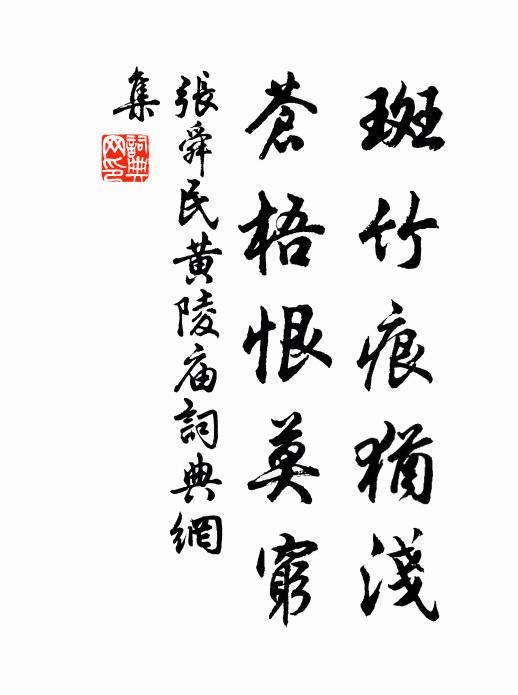 斑竹痕猶淺
蒼梧恨莫窮
張舜民黃陵庙詞典網
集
詞典
网印